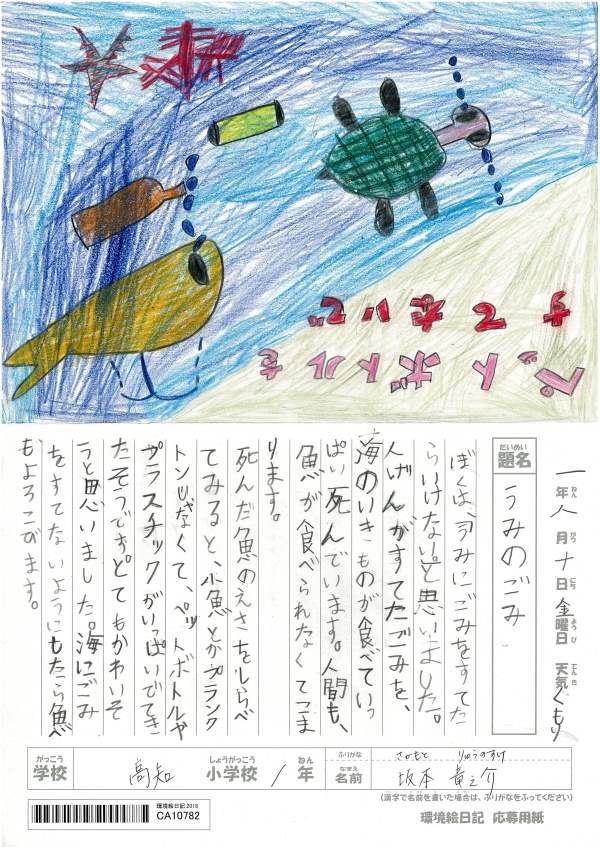 ペットボトルを
すてないで
一年八月十日金曜日 天気くもり
ねん がつ にち ようび てんき
だいめい
題名
うみのごみ
ぼくは、うみにごみをすてた
らいけない。と思いました。
人げんがすてたごみを、
海のいきものが食べていっ
ぱい死んでいます。人間も、
魚が食べられなくてこま
ります。
死んだ魚のえさをしらべ
てみると、小魚とかプランク
トンじゃなくて、ペットボトルや
プラスチックがいっぱいでてき
たそうです。とてもかわいそ
うと思いました。海にごみ
をすてないようにもたら魚
もよろこびます。
がっこう しょうがっこう ねん
学校 高知 小学校 1年
ふりがな さかもと りゅうのすけ
なまえ
名前 坂本 竜之介
(漢字で名前を書いた場合は、ふりがなをふってください)
環境絵日記 2018
CA10782
環境絵日記 応募用紙